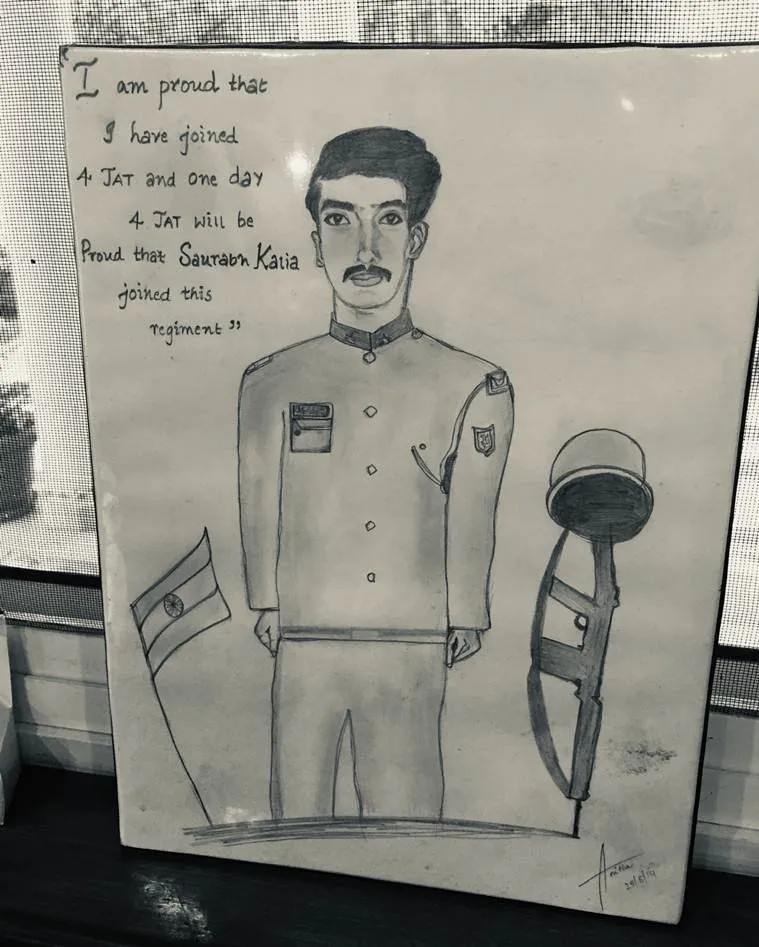 I am proud that
I have joined
4 JAT and one day
4 JAT will be
Proud that Saurabh Kalia
joined this
regiment ”